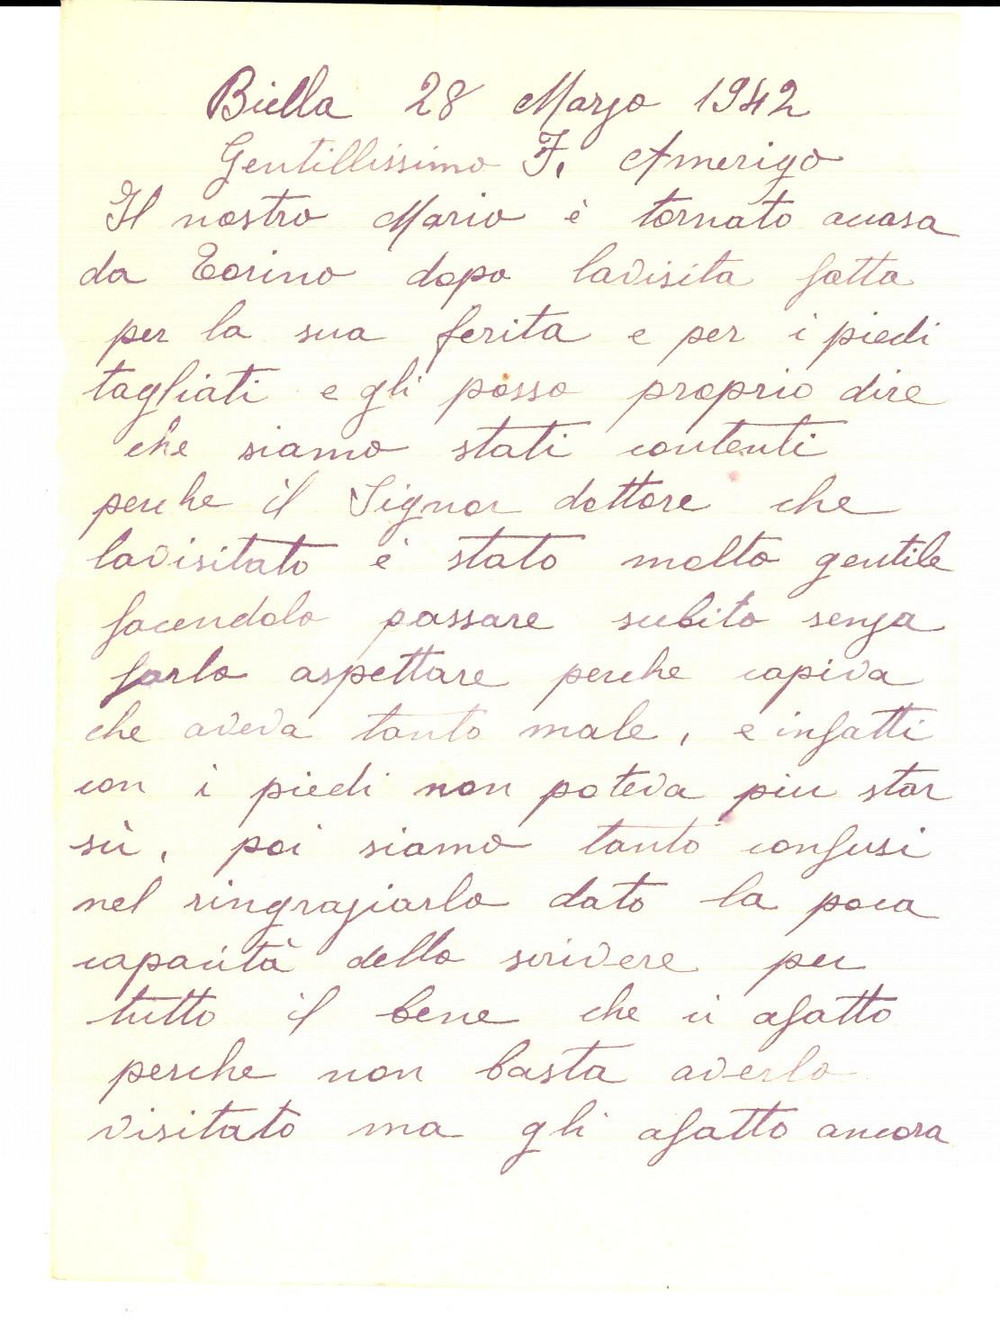 Biella 28 Marzo 1942
Gentillissimo F. Amerigo
Il nostro Mario è tornato acasa
da Torino dopo lavisita fatta
per la sua ferita e per i piedi
tagliati e gli posso proprio dire
che siamo stati contenti
perche il Signor dottore che
lavisitato è stato molto gentile
facendolo passare subito senza
farlo aspettare perche capiva
che aveva tanto male, e infatti
con i piedi non poteva piu star
sù, poi siamo tanto confusi
nel ringraziarlo dato la poca
capacità dello scrivere per
tutto il bene che ci afatto
perche non basta averlo
visitato ma gli afatto ancora